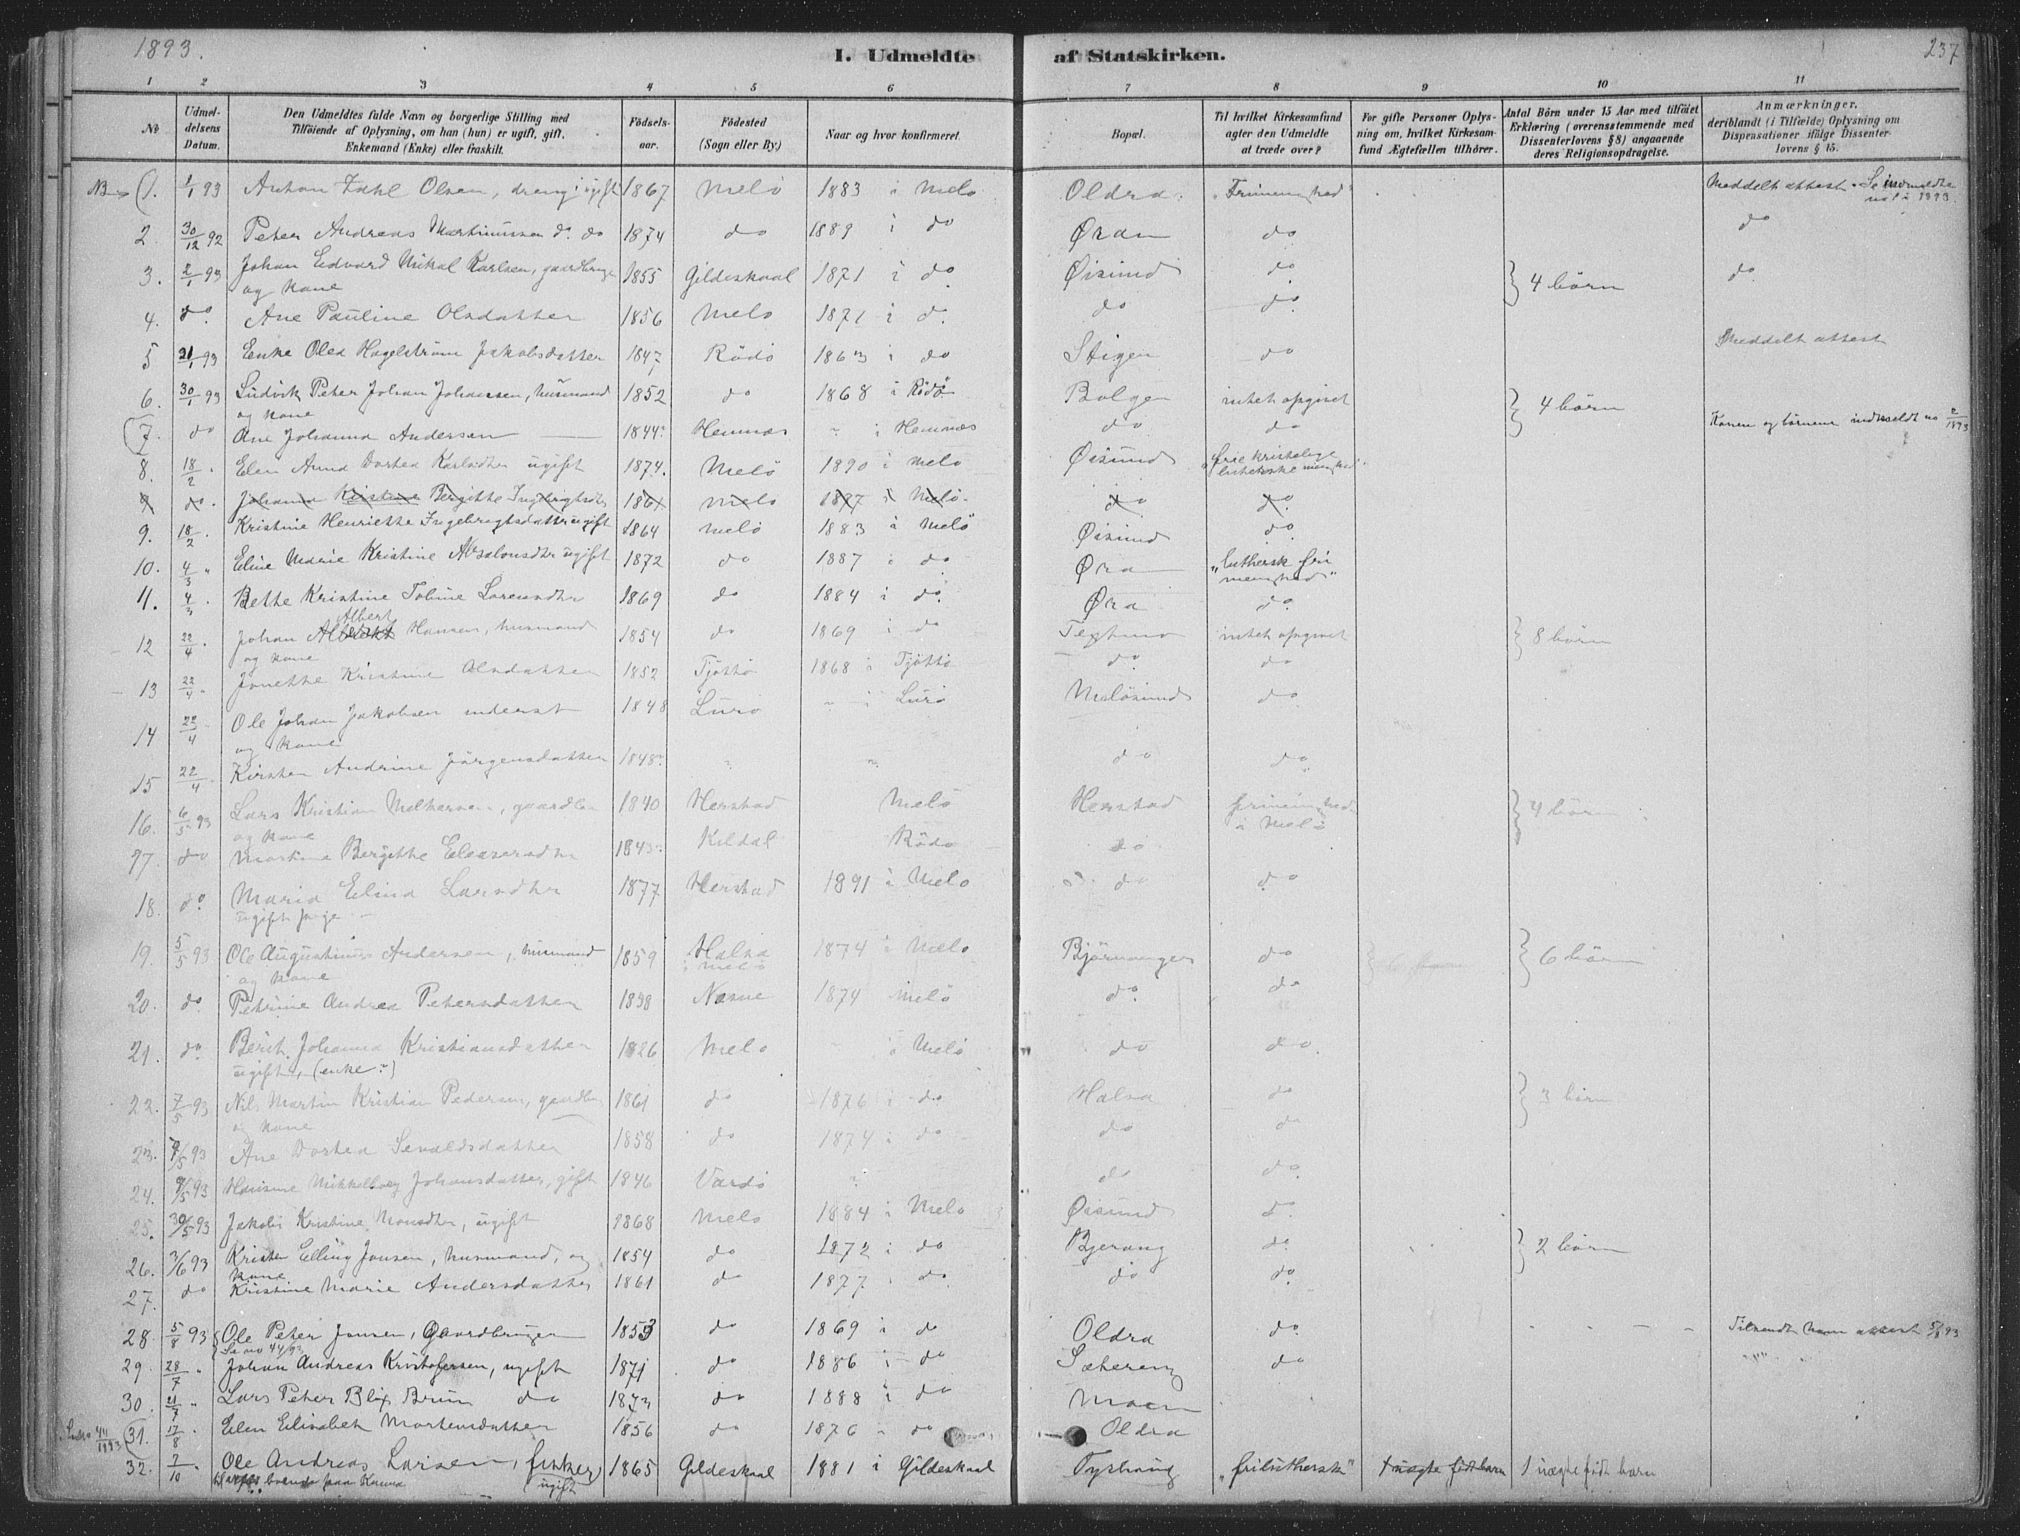 1893.
I. Udmeldte af Statskirken.
237
1 2 3 4 5 6 7 8 9 10 11
No
Udmeldelsens Datum.
Den Udmeldtes fulde Navn og borgerlige Stilling med
Tilføiende af Oplysning, om han (hun) er ugift, gift,
Enkemand (Enke) eller fraskilt.
Fødselsaar.
Fødested
(Sogn eller By.)
Naar og hvor konfirmeret.
Bopæl.
Til hvilket Kirkesamfund
agter den Udmeldte
at træde over?
For gifte Personer Oplysning om, hvilket Kirkesamfund Ægtefællen tilhører.
Antal Børn under 15 Aar med tilføiet
Erklæring (overensstemmende med
Dissenterlovens § 8) angaaende
deres Religionsopdragelse.
Anmærkninger,
deriblandt (i Tilfælde) Oplysning om
Dispensationer ifølge Dissenterlovens § 15.
1. 1/1 93 Anton Dahl Olsen, dreng, ugift 1867 Melö 1883 i Melö Oldra "Frimenighed" Meddelt attest. Se indmeldte
no 1 i 1893.
2. 30/12 92 Peter Andreas Martinussen do. do 1874 do 1889 i do Øran do do
3. 2/1 93 Johan Edvard Mikal Karlsen, gaardbruger 1855 Gildeskaal 1871 i do. Øisund do 4 börn do
og kone
4. do Ane Pauline Olsdatter 1856 Melö 1871 i do. do do
5 31/1 93 Enke Olea Hagelström Jakobsdatter 1847 Rödö 1863 i do Stigen do Meddelt attest
6. 30/1 93 Ludvik Peter Johan Johansen, husmand 1852 do 1868 i Rödö Bolgen intet opgivet 4 börn
og kone
7. do Ane Johanna Andersen 1844 Hemnæs " i Hemnæs do do Konen og börnene indmeldt no 2/1893
8. 18/2 Elen Anna Dortea Karlsdtr ugift 1874. Melö 1890 i Melö Øisund "frie kristelige
lutherske menighed"
9 do. Johanna Kristine Bergitte Ingebrigtsdtr 1861 Melö 1877 i Melö. do do.
9. 18/2 Kristine Henriette Ingebregtsdatter ugift 1864 Melö 1883 i Melö Øisund do
10. 4/3 " Eline Marie Kristine Absalonsdtr ugift 1872 do 1887 i do Øra "luthersk fri
menighed"
11. 4/3 Bette Kristine Toline Lorensdtr 1869 do 1884 i do. Øra do.
Albert
12 22/4 Johan Hansen, husmand 1854 do 1869 i do intet opgivet 8 börn
og kone
13 22/4 Jonette Kristine Olsdatter 1852 Tjöttö 1868 i Tjöttö do. do
14 22/4 Ole Johan Jakobsen inderst 1848 Lurö " i Lurö Melösund do
og kone
15 22/4 Kirsten Andrine Jörgensdatter 1848 " " do do
16. 6/5 93 Lars Kristian Melkersen, gaardbr 1840 Herstad Melö Herstad frimenighed
i Melö 4 börn
og kone
17. do Martina Bergitte Eleasersdtr 1843 Kildal Rödö do
18. do Maria Elina Larsdtr 1877 Herstad 1891 i Melö do do
ugift pige
19. 5/5 93 Ole Augustinus Andersen, husmand 1859 Halsa 1874 i Melö Bjørnanger do 6 börn
i Melö
og kone
20. do Petrine Andrea Petersdatter 1858 Nesne 1874 Melö do. do
21. do Berit Johanna Kristiansdatter 1826 Melö i Melö do do.
ugift, (enke?)
22. 7/5 93 Nils Martin Kristian Pedersen, gaardbr 1861 do 1876 i do Halsa do 3 börn
og kone
23. 9/5 93 Ane Dortea Sevaldsdatter 1858 do 1874 i do do do
24. 9/5 93 Hansine Mikkelborg Johansdatter, gift 1846 Vardö " do do.
25. 30/5 93 Jakobi Kristine Monsdtr, ugift 1868 Melö 1884 i Melö Øisund do.
26. 3/6 93 Krister Elling Jonsen, husmand, og 1854 do 1872 i do Bjerang do. 2 börn
kone
27. do Kristine Marie Andersdatter 1861 do 1877 i do. do do.
28. 5/8 93 Ole Peter Jonsen, Gaardbruger 1853 do 1869 i do Oldra do. Tilsendt ham attest 5/8 93
Se no 44/93
29. 28/7 " Johan Andreas Kristofersen, ugift 1871 do 1886 i do Sæthereng do
30. 21/7 " Lars Peter Blix Brun do 1873 do 1888 i do Moen
31. 17/8 Elen Elisabet Mortensdatter 1856 do 1876 i do Oldra
32. 7/10 Ole Andreas Larsen, fisker, 1865 Gildeskaal 1881 i Gildeskaal "frilutherske" 1 uægte födt barn 1 uægte födt barn
ugift